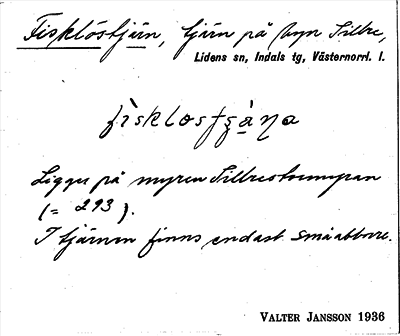 Fisklöstjärn, tjärn på byn Sillre,
Lidens sn, Indals tg, Västernorrl. l.
Ligger på myren Sillrestormyran
(= 293).
I tjärnen finns endast småabborre.
VALTER JANSSON 1936